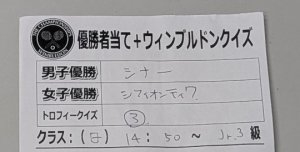 優勝者当て+ウィンブルドンクイズ
男子優勝 シナー
女子優勝 シフィオンティク
トロフィークイズ ③
クラス:(日) 14:50~ Jr.3 級